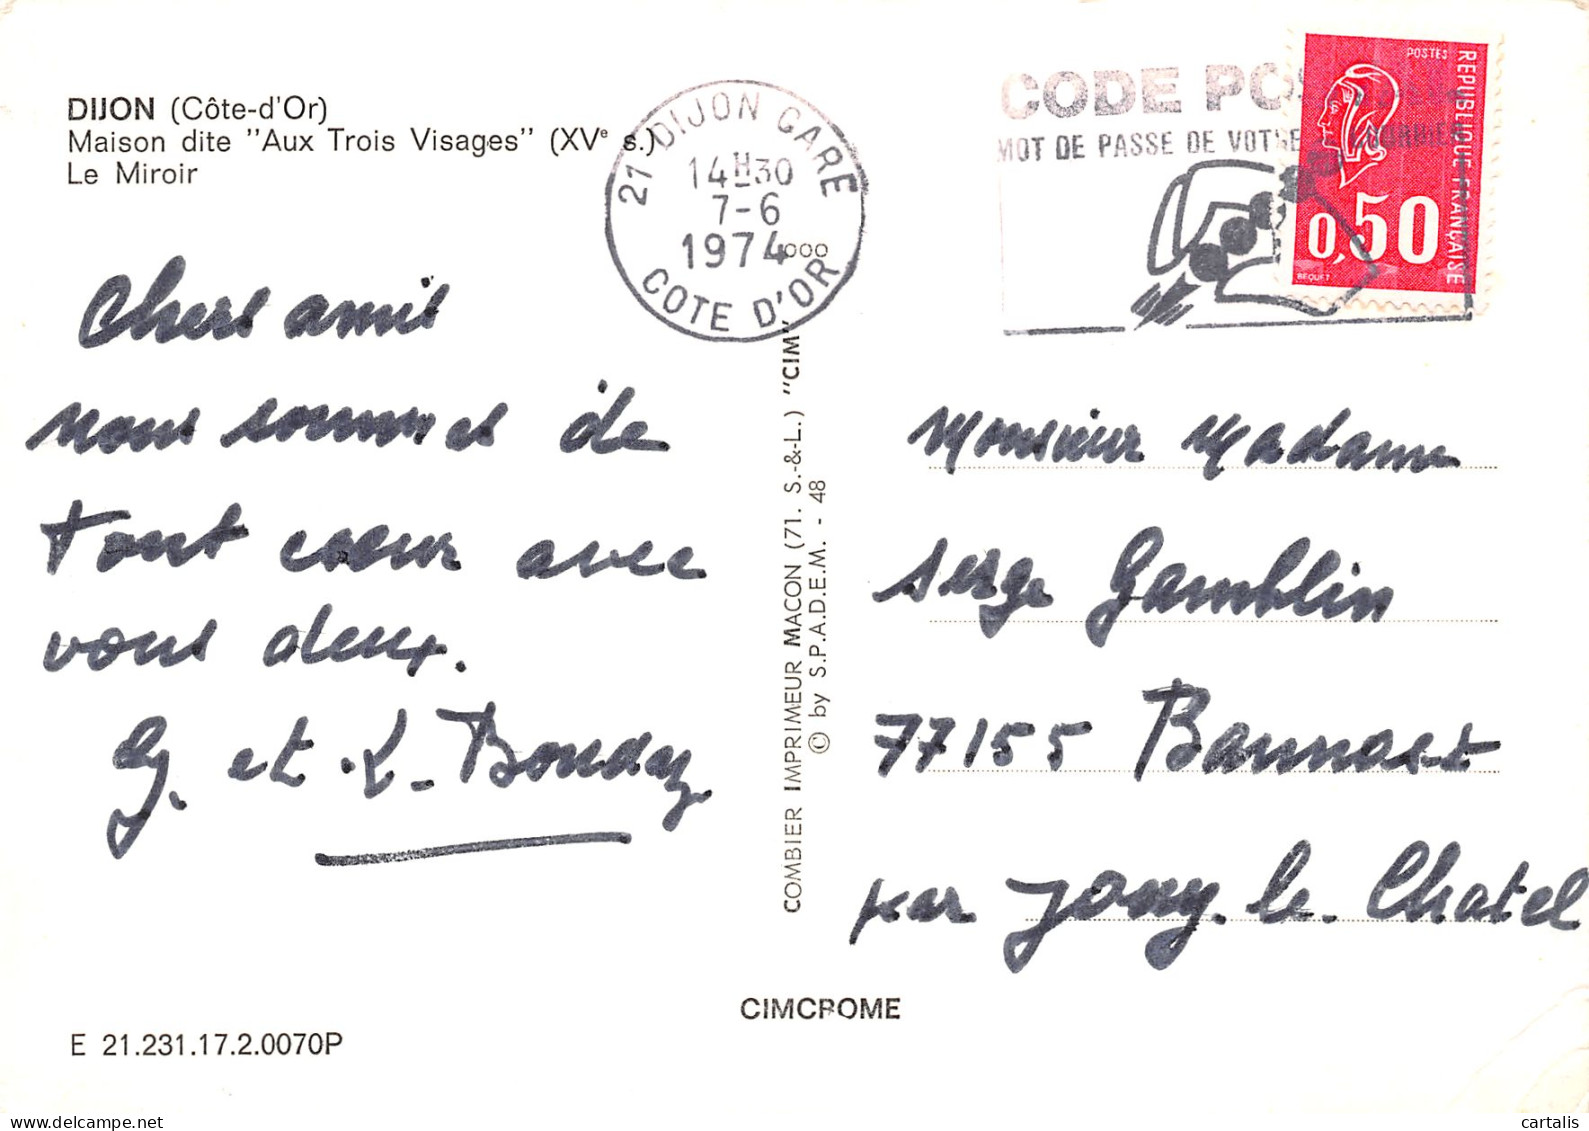 DIJON (Côte-d'Or)
Maison dite "Aux Trois Visages" (XVe s.)
Le Miroir
21 DIJON GARE
14H30
7-6
1974
COTE D'OR
CODE POS
MOT DE PASSE DE VOTRE COURRIER
POSTES
REPUBLIQUE FRANÇAISE
0,50
BEQUET
Chers amis
nous sommes de
tout cœur avec
vous deux.
G. et
COMBIER IMPRIMEUR MACON (71. S.-&-L.) "CIM"
© by S.P.A.D.E.M. - 48
Monsieur Madame
Serge Gamblin
77155 Bannost
par Jouy-le-Chatel
CIMCROME
E 21.231.17.2.0070P
cartalis
www.delcampe.net